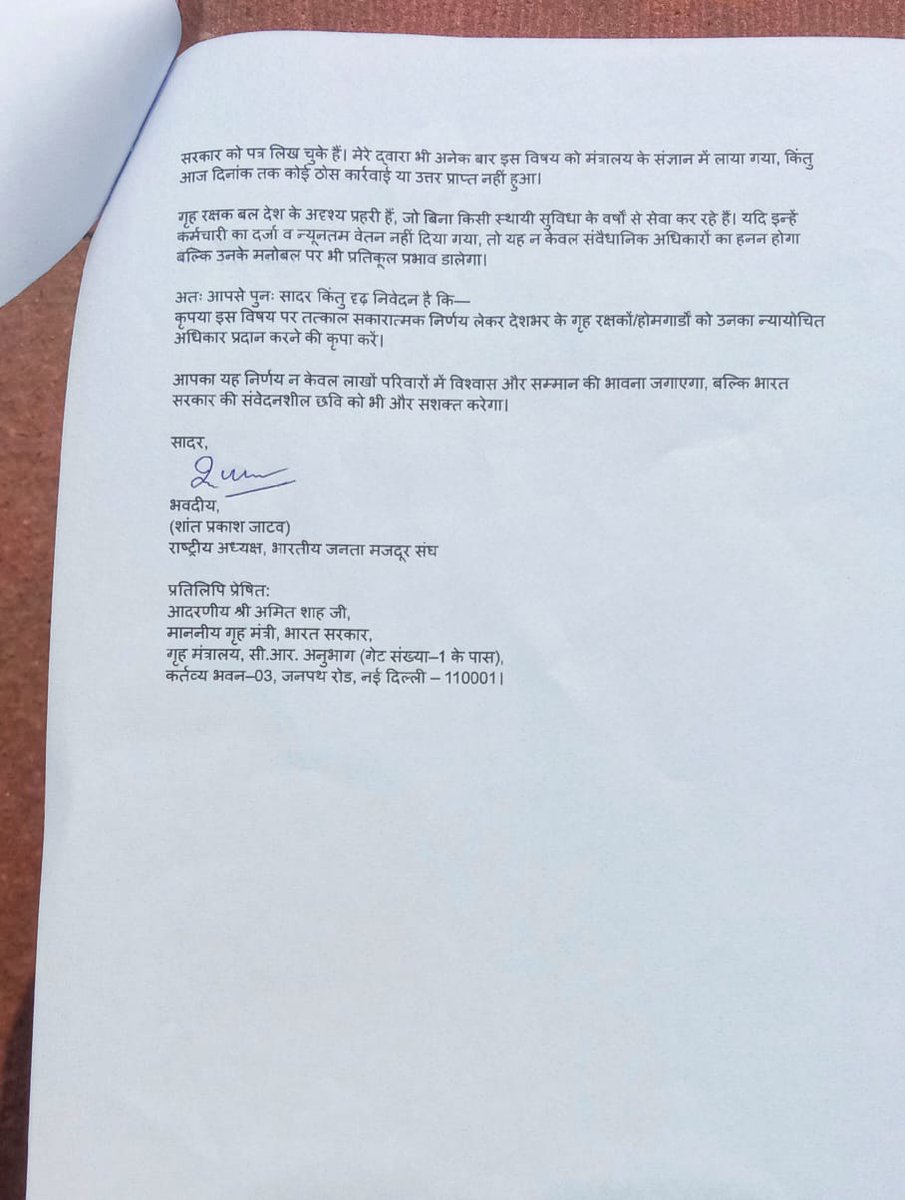 सरकार को पत्र लिख चुके हैं। मेरे द्वारा भी अनेक बार इस विषय को मंत्रालय के संज्ञान में लाया गया, किंतु
आज दिनांक तक कोई ठोस कार्रवाई या उत्तर प्राप्त नहीं हुआ।
गृह रक्षक बल देश के अदृश्य प्रहरी हैं, जो बिना किसी स्थायी सुविधा के वर्षों से सेवा कर रहे हैं। यदि इन्हें
कर्मचारी का दर्जा व न्यूनतम वेतन नहीं दिया गया, तो यह न केवल संवैधानिक अधिकारों का हनन होगा
बल्कि उनके मनोबल पर भी प्रतिकूल प्रभाव डालेगा।
अतः आपसे पुनः सादर किंतु दृढ़ निवेदन है कि—
कृपया इस विषय पर तत्काल सकारात्मक निर्णय लेकर देशभर के गृह रक्षकों/होमगार्डों को उनका न्यायोचित
अधिकार प्रदान करने की कृपा करें।
आपका यह निर्णय न केवल लाखों परिवारों में विश्वास और सम्मान की भावना जगाएगा, बल्कि भारत
सरकार की संवेदनशील छवि को भी और सशक्त करेगा।
सादर,
भवदीय,
(शांत प्रकाश जाटव)
राष्ट्रीय अध्यक्ष, भारतीय जनता मजदूर संघ
प्रतिलिपि प्रेषित:
आदरणीय श्री अमित शाह जी,
माननीय गृह मंत्री, भारत सरकार,
गृह मंत्रालय, सी.आर. अनुभाग (गेट संख्या–1 के पास),
कर्तव्य भवन–03, जनपथ रोड, नई दिल्ली – 110001।